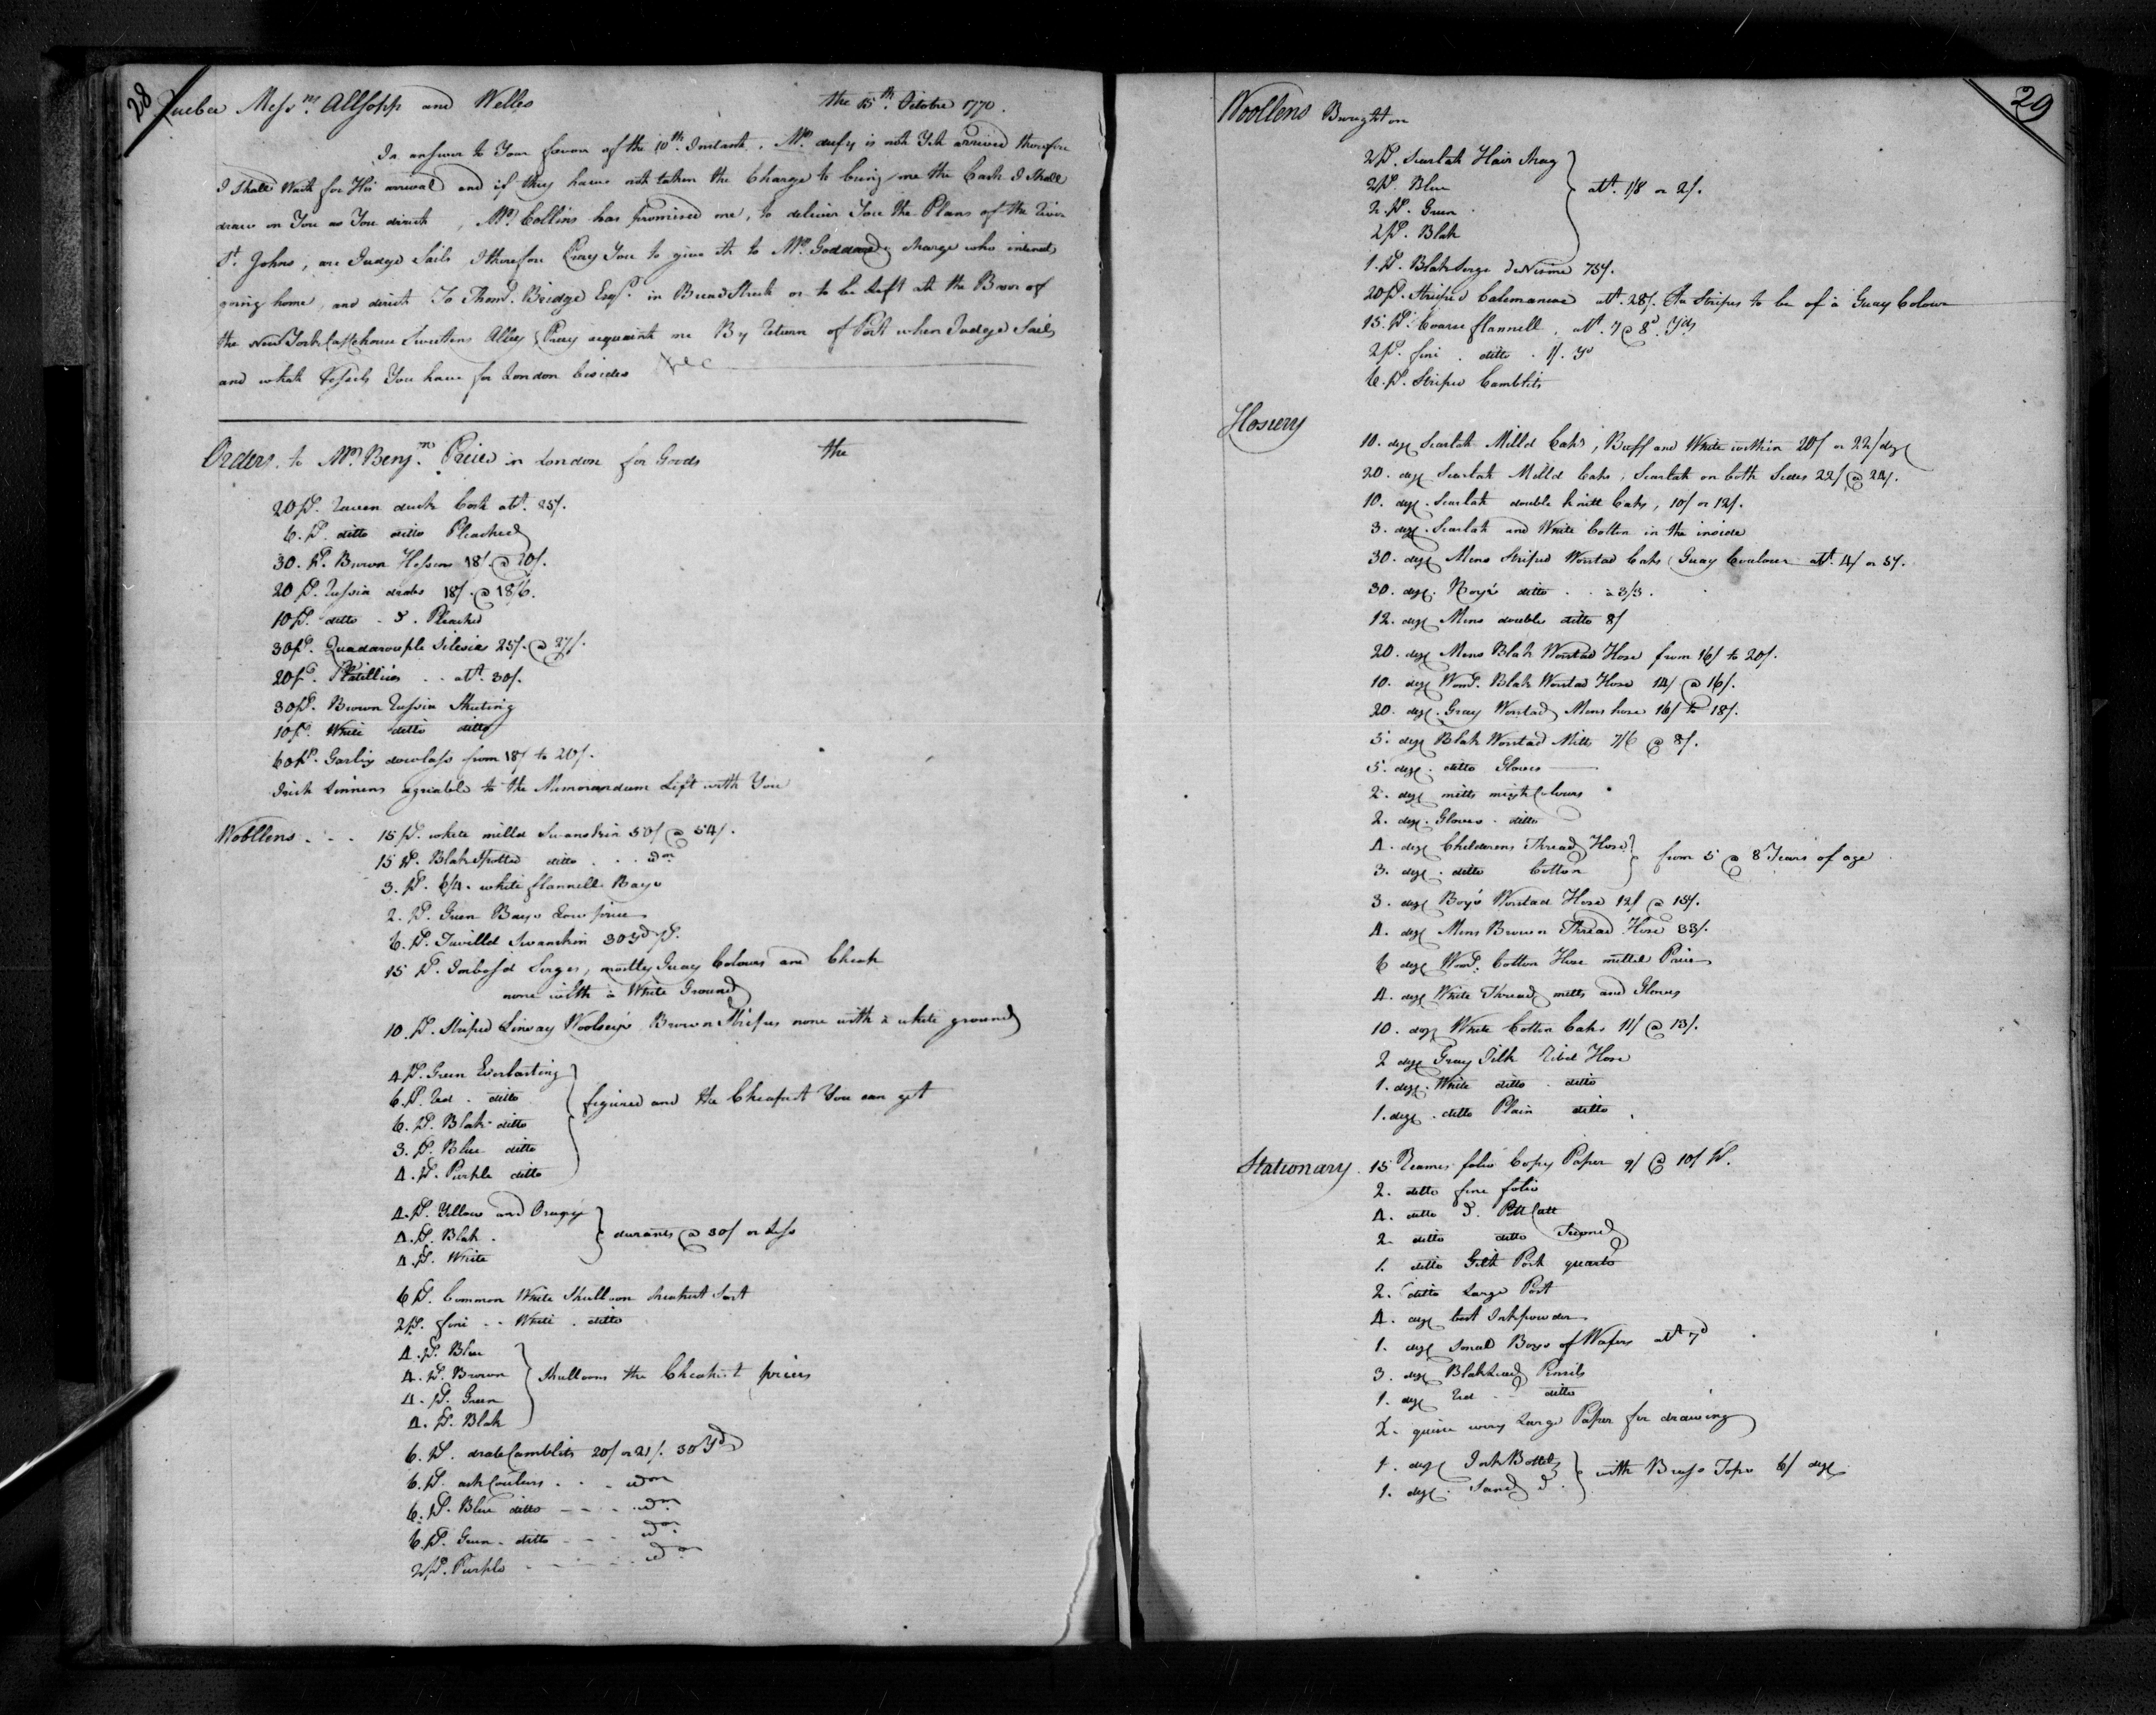 28
Quebec Mess.rs Allsopp and Welles the 15th. Octobre 1770.
In answer to Your favour of the 10th. Instant. Mr. dufy is not Yet arrived therefore
I Shall Wait for His arrival and if they have not taken the Charge to bring me the Cash I Shall
draw on You as You direct, Mr. Collins has promised me, to deliver You the Plans of the River
St. Johns, are Judge Sails I therefore Pray You to give it to Mr. Goddard, charge who intends
going home, and direct To Thoms. Bridge Esqr. in Bread Street or to be Left at the Barr of
the New York Coffehouse Sweetens Alley Pray acquaint me By Return of Post when Judge Sails
and what Vessels You have for London besides &c
Orders, to Mr. Benjn. Price in London for Goods the
20 Ps. Raven duck Cost att. 25/.
6. Ps. ditto ditto Pleached
30. Ps. Brown Hessens 18/. @ 20/.
20 Ps. Russia drabs 18/. @ 18/6.
10 Ps. ditto - d. Pleached
30 Ps. Quadarouple Silesias 25/. @ 27/.
20 Ps. Platillies . . att. 30/.
30 Ps. Brown Russia Sheeting
10 Ps. White ditto ditto
60 Ps. Garlix dowlass from 18/ to 20/.
Irish Linnens agriable to the Memorandum Left with You
Woollens . . . 15 Ps. white milld Swanskin 50/ @ 54/.
15 Ps. Blak Spotted ditto . . . idm
3. Ps. 6/4. white flannell Bays
2. Ps. Green Bays Low price
6. Ps. Twilld Swanskin 30 Yd ps.
15 Ps. Imboss'd Serges, mostly Guay Colours and Cheak
none with a White Ground
10 Ps. Striped Linsay Woolsey's Brown Stripes none with a white ground
4 Ps. Green Everlasting
6. Ps. Red . ditto figured and the Cheapest You can get
6. Ps. Blak ditto
3. Ps. Blue ditto
4. Ps. Purple ditto
4. Ps. Yellow and Orange
4. Ps. Blak . durants @ 30/ or Less
4. Ps. White
6 Ps. Common White Shulloon cheapest Sort
2 Ps. fine . . White . ditto
4. Ps. Blue
4. Ps. Brown Shulloons the Cheapest prices
4. Ps. Green
4. Ps. Blak
6. Ps. drab Camblits 20/ or 21/. 30 Yds
6. Ps. ash Coulours . . . idm
6. Ps. Blue ditto - - - . idm
6. Ps. Green . ditto - - - idm
2 Ps. Purple - - - - idm
29
Woollens Brought on
2 Ps. Scarlat Hair Shag
2 Ps. Blue att. 1/8 or 2/.
2. Ps. Green
2 Ps. Blak
1. Ps. Blak Serge deNisme 75/.
20 Ps. Striped Calemancas att. 28/. the Stripes to be of a Guay Colour
15. Ps. Coarse flannell . att. 7 @ 8d. Yds
2 Ps. fine . ditto . 1/. Yd
6. Ps. Striped Camblits
Hosiery
10. dozn Scarlat Milld Caps, Buff and White within 20/ or 22/ dozn
20. dozn Scarlat Milld Caps, Scarlat on both Sides 22/ @ 24/.
10. dozn. Scarlat double knitt Caps, 10/ or 12/.
3. dozn. Scarlat and White Cotton in the inside
30. dozn Mens Striped Worstad Caps Guay Coulour att. 4/ or 5/.
30. dozn. Boy's ditto . . a 3/3.
12. dozn Mens double ditto 8/
20. dozn Mens Blak Worstad Hose from 16/ to 20/.
10. dozn Woms. Blak Worstad Hose 14/ @ 16/.
20. dozn. Gray Worstad Mens hose 16/ to 18/.
5. dozn Blak Worstad Mitts 7/6 @ 8/.
5. dozn. ditto Gloves
2. dozn mitts mixt Colours
2. dozn. Gloves . ditto
4. dozn Childerens Thread Hose
3. dozn . ditto Cotton from 5 @ 8 Years of age
3. dozn Boy's Worstad Hose 12/ @ 15/.
4. dozn Mens Brown Thread Hose 33/.
6 dozn Woms. Cotton Hose mittel Price
4. dozn White Thread mitts and Gloves
10. dozn White Cotton Caps 11/ @ 13/.
2 dozn Gray Silk Ribd Hose
1. dozn. White ditto . ditto
1. dozn . ditto Plain ditto .
Stationary. 15 Reames folio Copy Paper 9/ @ 10/ Ps.
2. ditto fine folio
4. ditto d. Pott Cutt
2. ditto ditto
1. ditto Gilt Post quarto
2. ditto Large Post
4. dozn best Inkpowder
1. dozn Small Boxs of Wafers att 7d
3. dozn Blaklead Pensils
1. dozn Red . . ditto
2. quire wery Large Paper for drawing
1. dozn Ink Bottels
1. dozn . Sand d. with Brass Tops 6/ dozn